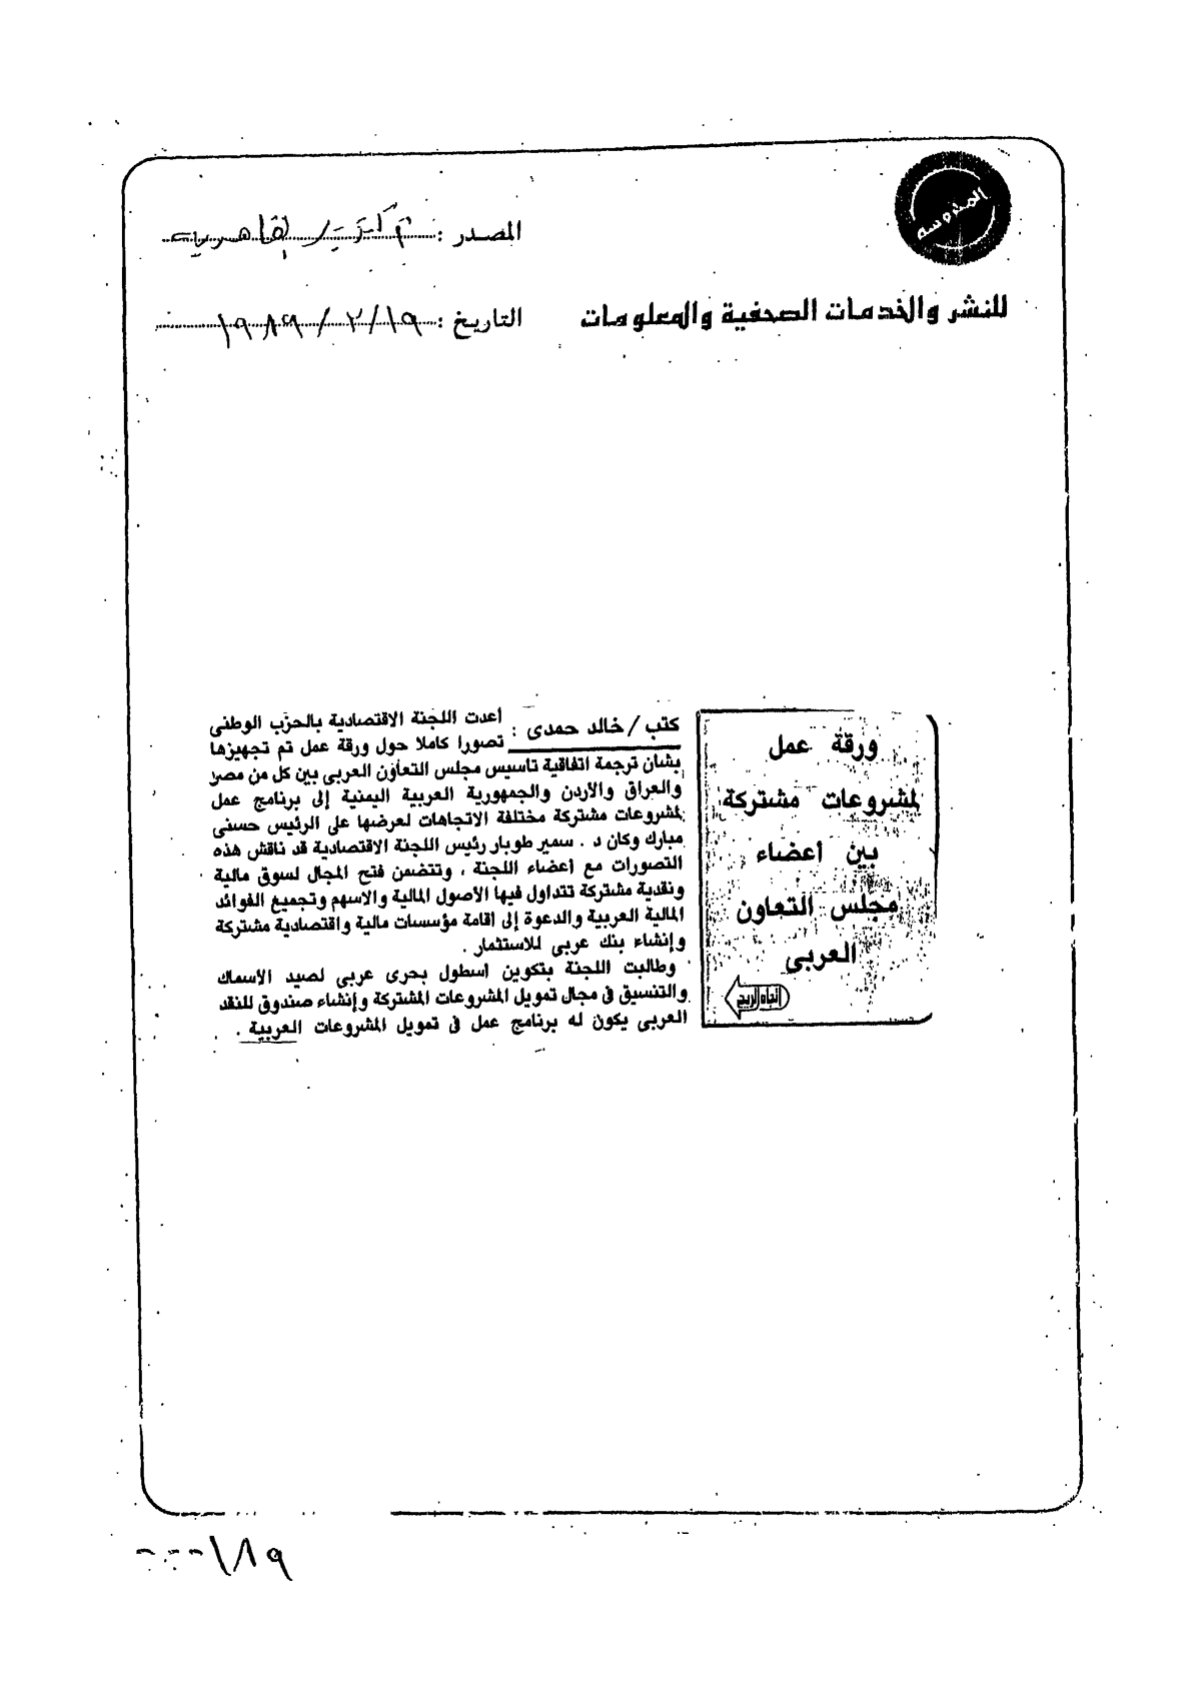 المحروسة
للنشر والخدمات الصحفية والمعلومات
المصدر :
التاريخ : ١٩/٢/١٩٨٩
ورقة عمل
لمشروعات مشتركة
بين أعضاء
مجلس التعاون
العربى
إتجاه الريح
كتب / خالد حمدى :
أعدت اللجنة الاقتصادية بالحزب الوطنى
تصورا كاملا حول ورقة عمل تم تجهيزها
بشأن ترجمة اتفاقية تأسيس مجلس التعاون العربى بين كل من مصر
والعراق والأردن والجمهورية العربية اليمنية إلى برنامج عمل
لمشروعات مشتركة مختلفة الاتجاهات لعرضها على الرئيس حسنى
مبارك وكان د . سمير طوبار رئيس اللجنة الاقتصادية قد ناقش هذه
التصورات مع أعضاء اللجنة ، وتتضمن فتح المجال لسوق مالية
ونقدية مشتركة تتداول فيها الأصول المالية والاسهم وتجميع الفوائد
المالية العربية والدعوة إلى اقامة مؤسسات مالية واقتصادية مشتركة
وإنشاء بنك عربى للاستثمار .
وطالبت اللجنة بتكوين اسطول بحرى عربى لصيد الأسماك
والتنسيق فى مجال تمويل المشروعات المشتركة وإنشاء صندوق للنقد
العربى يكون له برنامج عمل فى تمويل المشروعات العربية .
١٨٩